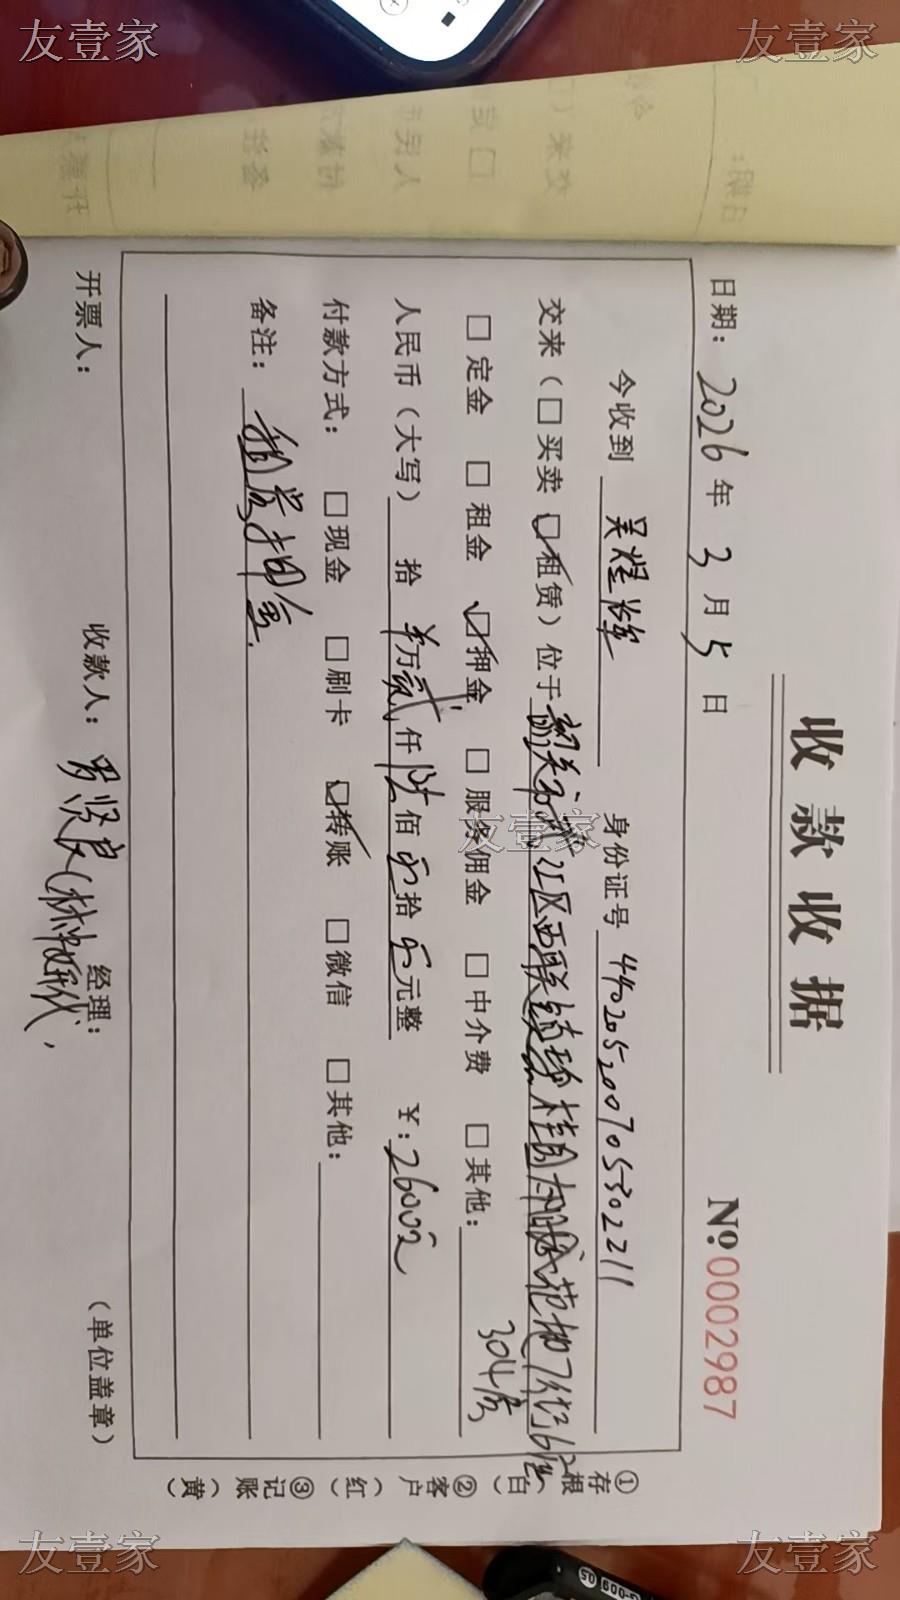 友壹家
友壹家
收款收据
№0002987
日期：2026年3月5日
今收到 吴煜 身份证号 440205200705302211
交来（□买卖 ☑租赁）位于韶关市武江区西联镇 桂园 7街6座
304房
□定金 □租金 ☑押金 □服务佣金 □中介费 □其他：
人民币（大写） 拾 万贰仟陆佰 拾 元整 ¥：2600
付款方式： □现金 □刷卡 ☑转账 □微信 □其他：
备注： 租房押金.
开票人： 收款人：罗贤良 经理： （单位盖章）
①存根（白） ②客户（红） ③记账（黄）
友壹家
友壹家
友壹家